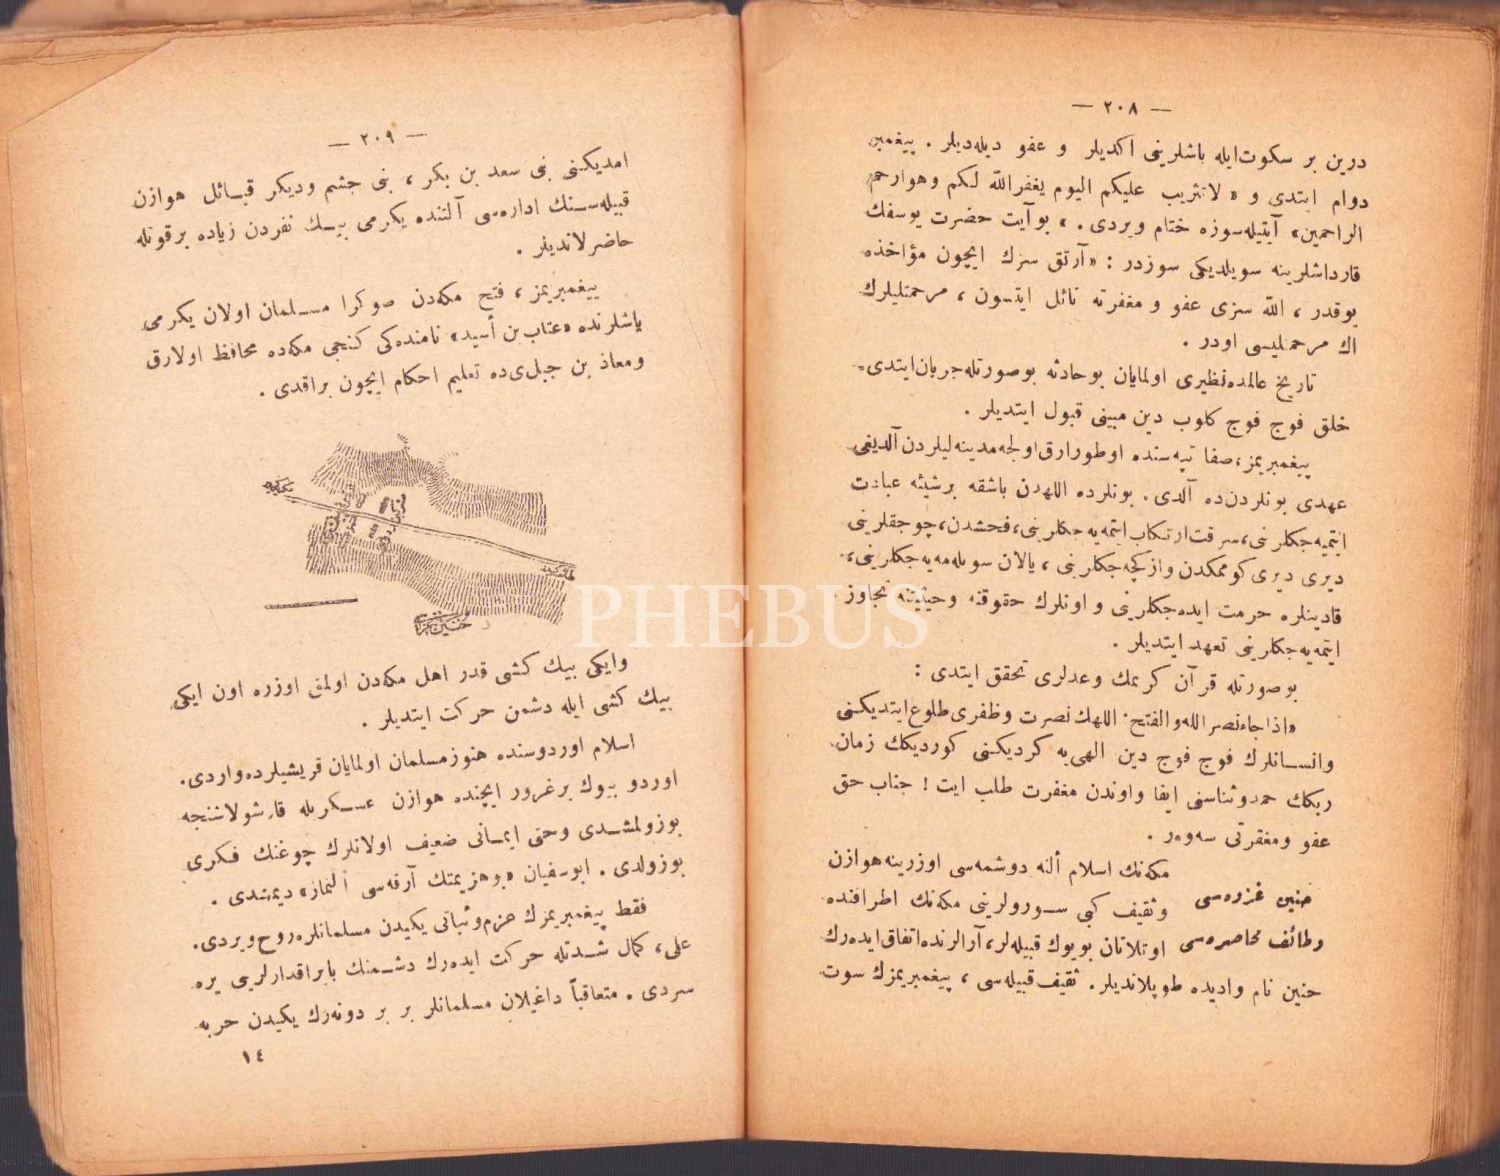 — ٢٠٨ —
درين بر سكوت‌ايله باشلرينى اكديلر و عفو ديله‌ديلر . پيغمبر
دوام ايتدى و « لاتثريب عليكم اليوم يغفرالله لكم وهوارحم
الراحمين» آيتيله‌سوزه ختام ويردى . » بوآيت حضرت يوسفك
قارداشلرينه سويلديكى سوزدر : «آرتق سزك ايچون مؤاخذه
يوقدر ، الله سزى عفو و مغفرته نائل ايتسون ، مرحمتليلرك
اك مرحمتليسى اودر .
تاريخ عالمده‌نظيرى اولمايان بوحادثه بوصورتله‌جريان‌ايتدى.
خلق فوج فوج كلوب دين مبينى قبول ايتديلر .
پيغمبريمز، صفا تپه‌سنده اوطورارق‌اولجه‌مدينه‌ليلردن‌آلديغى
عهدى بونلردن‌ده آلدى . بونلرده اللهدن باشقه برشيئه عبادت
ايتميه‌جكلرنى، سرقت‌ارتكاب ايتمه‌يه‌جكلرينى، فحشدن، چوجقلرينى
ديرى ديرى كوممكدن وازكچه‌جكلرينى ، يالان سويله‌مه‌يه‌جكلرينى،
قادينلره حرمت ايده‌جكلرينى و اونلرك حقوقنه وحيثيتنه تجاوز
ايتمه‌يه‌جكلرينى تعهد ايتديلر .
بوصورتله قرآن كريمك وعدلرى تحقق ايتدى :
«اذاجاءنصرالله‌والفتح. اللهك نصرت وظفرى طلوع‌ايتديكنى
وانسانلرك فوج فوج دين الهى‌يه كرديكنى كورديكك زمان
ربكك حمدوثناسنى ايفا واوندن مغفرت طلب ايت ! جناب حق
عفو ومغفرتى سه‌وه‌ر .
مكه‌نك اسلام ألنه دوشمه‌سى اوزرينه هوازن
حنين غزوه‌سى وثقيف كبى سورولرينى مكه‌نك اطرافنده
وطائف محاصره‌سى اوتلاتان بويوك قبيله‌لر، آرالرنده‌اتفاق‌ايده‌رك
حنين نام واديده طوپلانديلر. ثقيف قبيله‌سى ، پيغمبريمزك سوت
— ٢٠٩ —
امديكنى بنى سعد بن بكر ، بنى جشم وديكر قبائل هوازن
قبيله‌سنك اداره‌سى آلتنده يكرمى بيك نفردن زياده برقوتله
حاضرلانديلر .
پيغمبريمز ، فتح مكه‌دن صوكرا مسلمان اولان يكرمى
ياشلرنده «عتاب بن أسيد» نامنده‌كى كنجى مكه‌ده محافظ اولارق
ومعاذ بن جبل‌ى‌ده تعليم احكام ايچون براقدى .
وايكى بيك كشى قدر اهل مكه‌دن اولمق اوزره اون ايكى
بيك كشى ايله دشمن حركت ايتديلر .
اسلام اوردوسنده هنوزمسلمان اولمايان قريشيلرده‌واردى.
اوردو بيوك برغرور ايچنده هوازن عسكريله قارشولاشنجه
بوزولمشدى وحتى ايمانى ضعيف اولانلرك چوغنك فكرى
بوزولدى . ابوسفيان «بوهزيمتك آرقه‌سى آلنماز» ديمشدى .
فقط پيغمبريمزك عزم‌وثباتى يكيدن مسلمانلره‌روح‌ويردى.
على، كمال شدتله حركت ايده‌رك دشمنك بايراقدارلرينى يره
سردى . متعاقباً داغيلان مسلمانلر بر بر دونه‌رك يكيدن حربه
١٤
PHEBUS